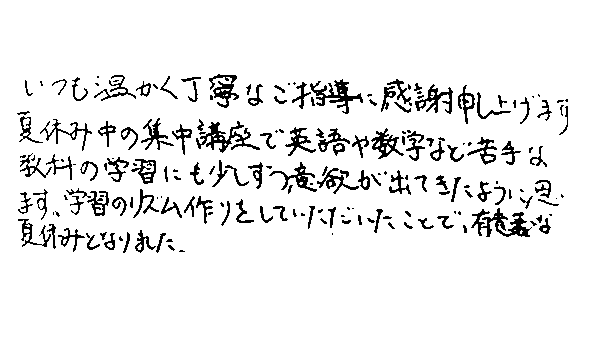 いつも温かく丁寧なご指導に感謝申し上げます
夏休み中の集中講座で英語や数学など苦手な
教科の学習にも少しずつ意欲が出てきたように思い
ます、学習のリズム作りをしていただいたことで、有意義な
夏休みとなりました、